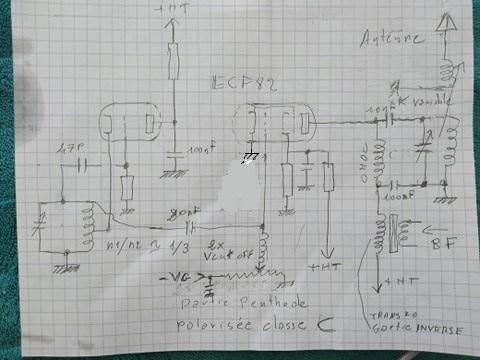 +HT
Antenne
ECF82
10nF
variable
47P
100nF
CHOC
100nF
20nF
n1/n2 ≈ 1/3
2x
Vcut off
BF
-VG
+HT
+HT
partie Penthode
polarisée classe C
TRANSFO
Sortie INVERSE